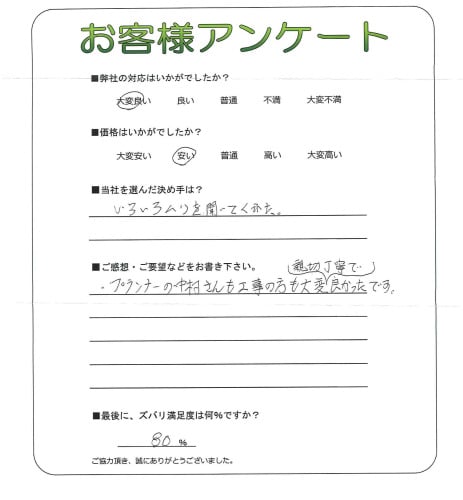 お客様アンケート
■弊社の対応はいかがでしたか？
大変良い 良い 普通 不満 大変不満
■価格はいかがでしたか？
大変安い 安い 普通 高い 大変高い
■当社を選んだ決め手は？
いろいろムリを聞いてくれた。
■ご感想・ご要望などをお書き下さい。
親切丁寧で
・プランナーの中村さんも工事の方も大変良かったです。
■最後に、ズバリ満足度は何％ですか？
80 %
ご協力頂き、誠にありがとうございました。